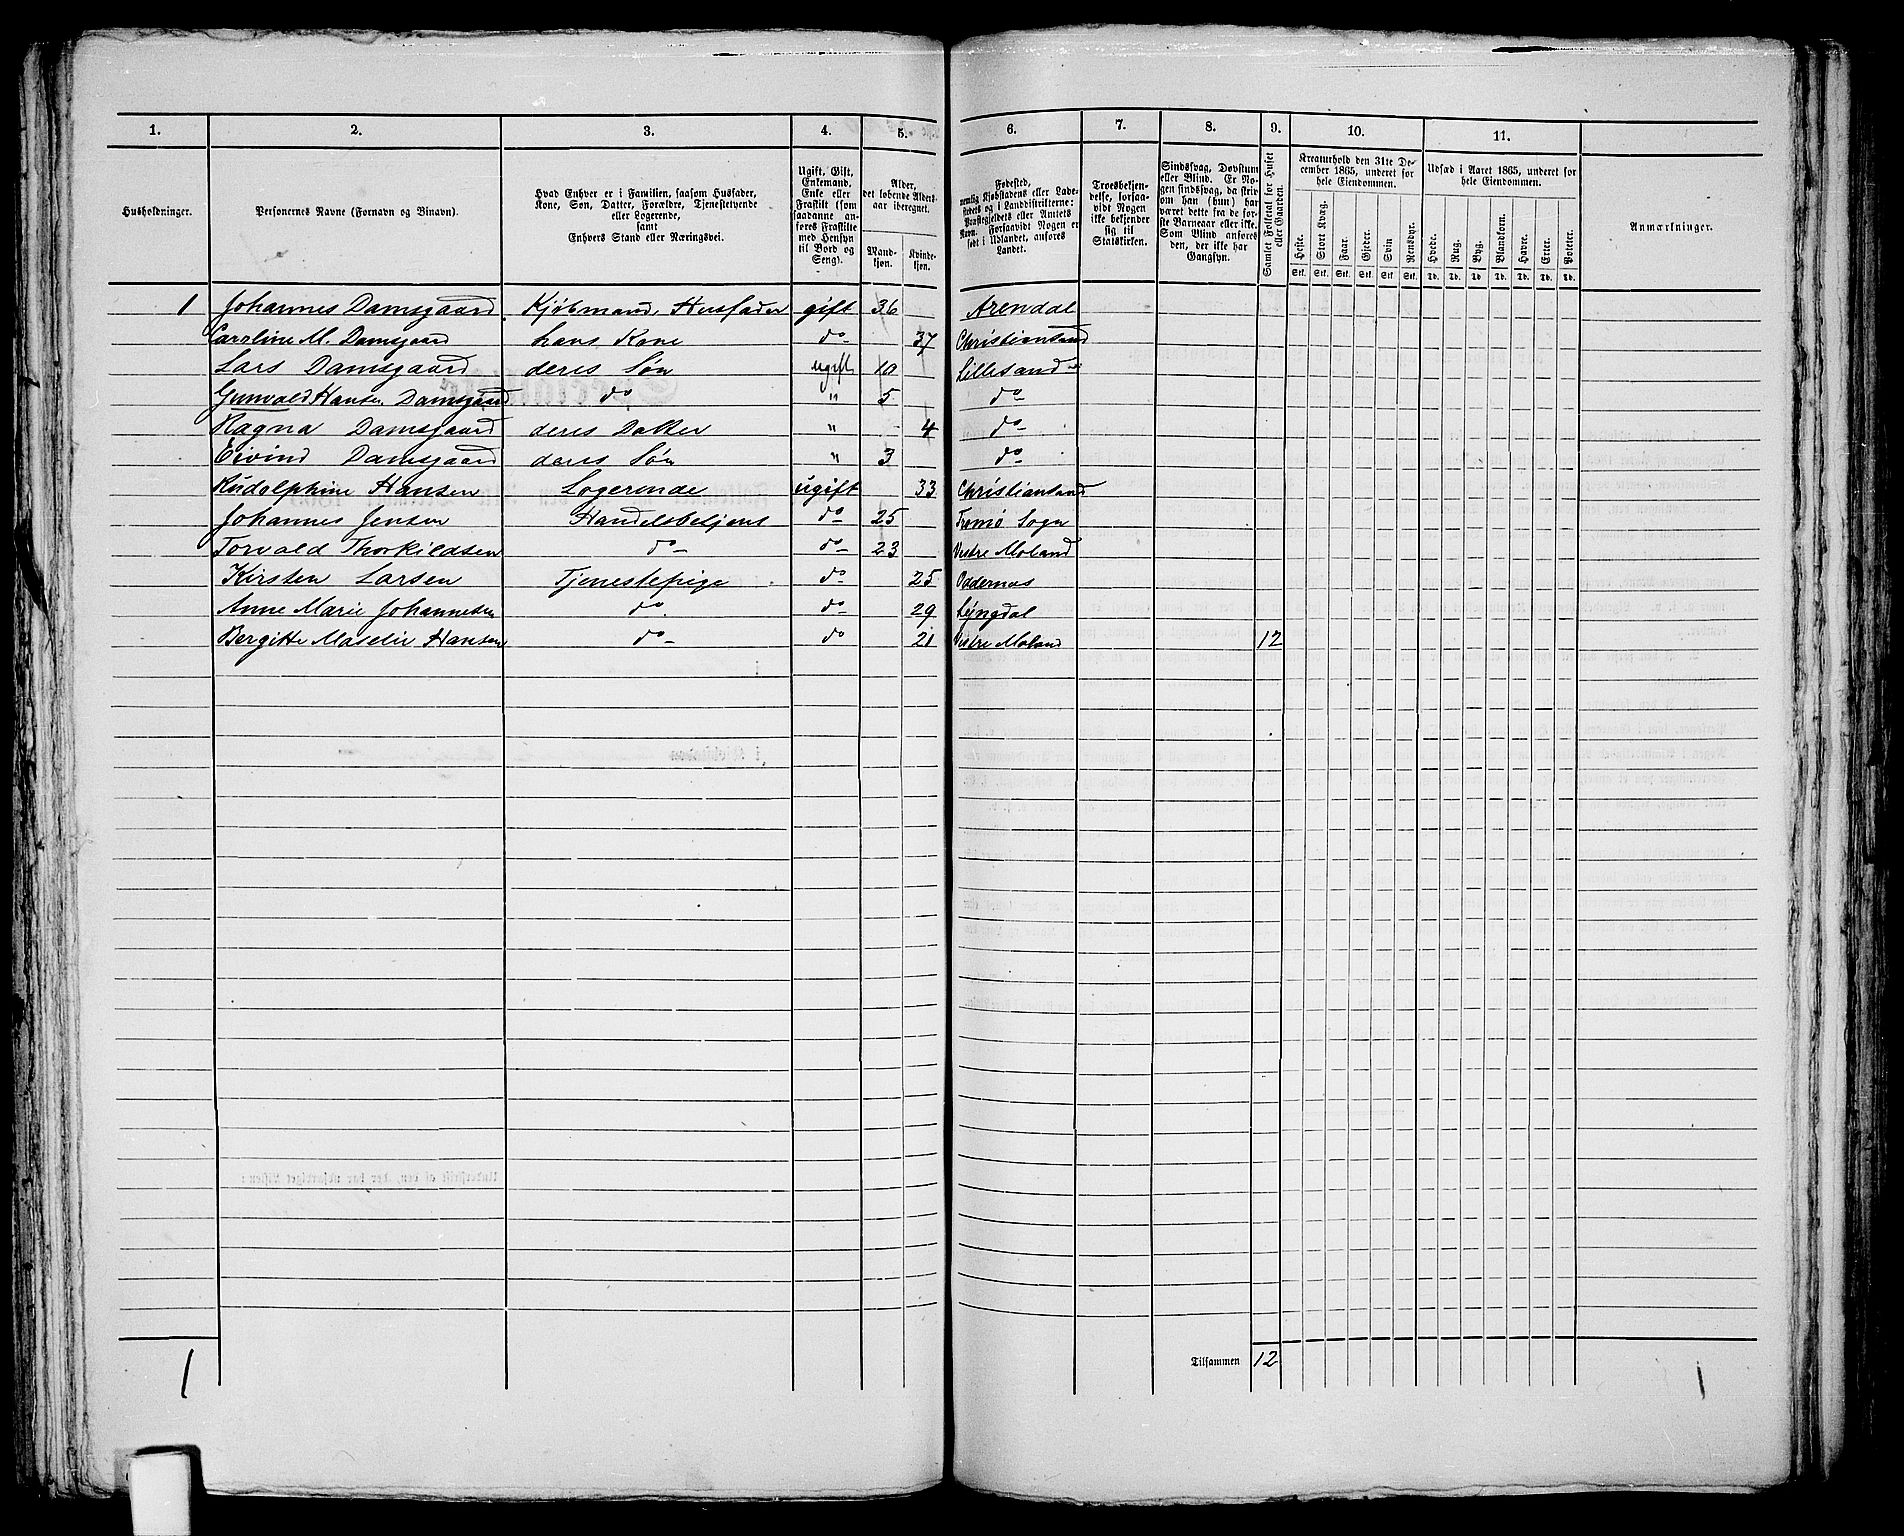 1. 2. 3. 4. 5. 6. 7. 8. 9. 10. 11.
Husholdninger.
Personernes Navne (Fornavn og Binavn).
Hvad Enhver er i Familien, saasom Husfader,
Kone, Søn, Datter, Forældre, Tjenestetyende
eller Logerende,
samt
Enhvers Stand eller Næringsvei.
Ugift, Gift,
Enkemand,
Enke eller
Fraskilt (som
saadanne an-
føres Fraskilte
med Hensyn
til Bord og
Seng).
Alder,
det løbende Alders-
aar iberegnet.
Mand-
kjøn.
Kvinde-
kjøn.
Fødested,
nemlig Kjøbstadens eller Lade-
stedets og i Landdistrikterne:
Præstegjeldets eller Amtets
Navn. Forsaavidt Nogen er
født i Udlandet, anføres
Landet.
Troesbekjen-
delse, forsaa-
vidt Nogen
ikke bekjender
sig til
Statskirken.
Sindssvag, Døvstum
eller Blind. Er No-
gen sindssvag, da skriv
om han (hun) har
været dette fra de før-
ste Barneaar eller ikke.
Som Blind anføres
den, der ikke har
Gangsyn.
Samlet Folketal for Huset
eller Gaarden.
Kreaturhold den 31te De-
cember 1865, underet for
hele Eiendommen.
Heste. Stort Kvæg. Faar. Gjeder. Svin Rensdyr.
Stk. Stk. Stk. Stk. Stk. Stk.
Udsæd i Aaret 1865, underet for
hele Eiendommen.
Hvede. Rug. Byg. Blandkorn. Havre. Erter. Poteter.
Td. Td. Td. Td. Td. Td. Td.
Anmærkninger.
1 Johannes Damsgaard Kjøbmand, Husfader gift 36 Arendal
Caroline M. Damsgaard hans Kone do 37 Christiansand
Lars Damsgaard deres Søn ugift 10 Lillesand
Gunvald Hansen Damsgaard do " 5 do
Ragna Damsgaard deres Datter " 4 do
Eivind Damsgaard deres Søn " 3 do
Rudolphine Hansen Logerende ugift 33 Christiansand
Johannes Jensen Handelsbetjent do 25 Tromø Sogn
Torvald Thorkildsen do do 23 Vestre Moland
Kirsten Larsen Tjenestepige do 25 Oddernæs
Anne Marie Johannesen do do 29 Lyngdal
Bergitte Maselie Hansen do do 21 Vestre Moland 12
1 Tilsammen 12 1